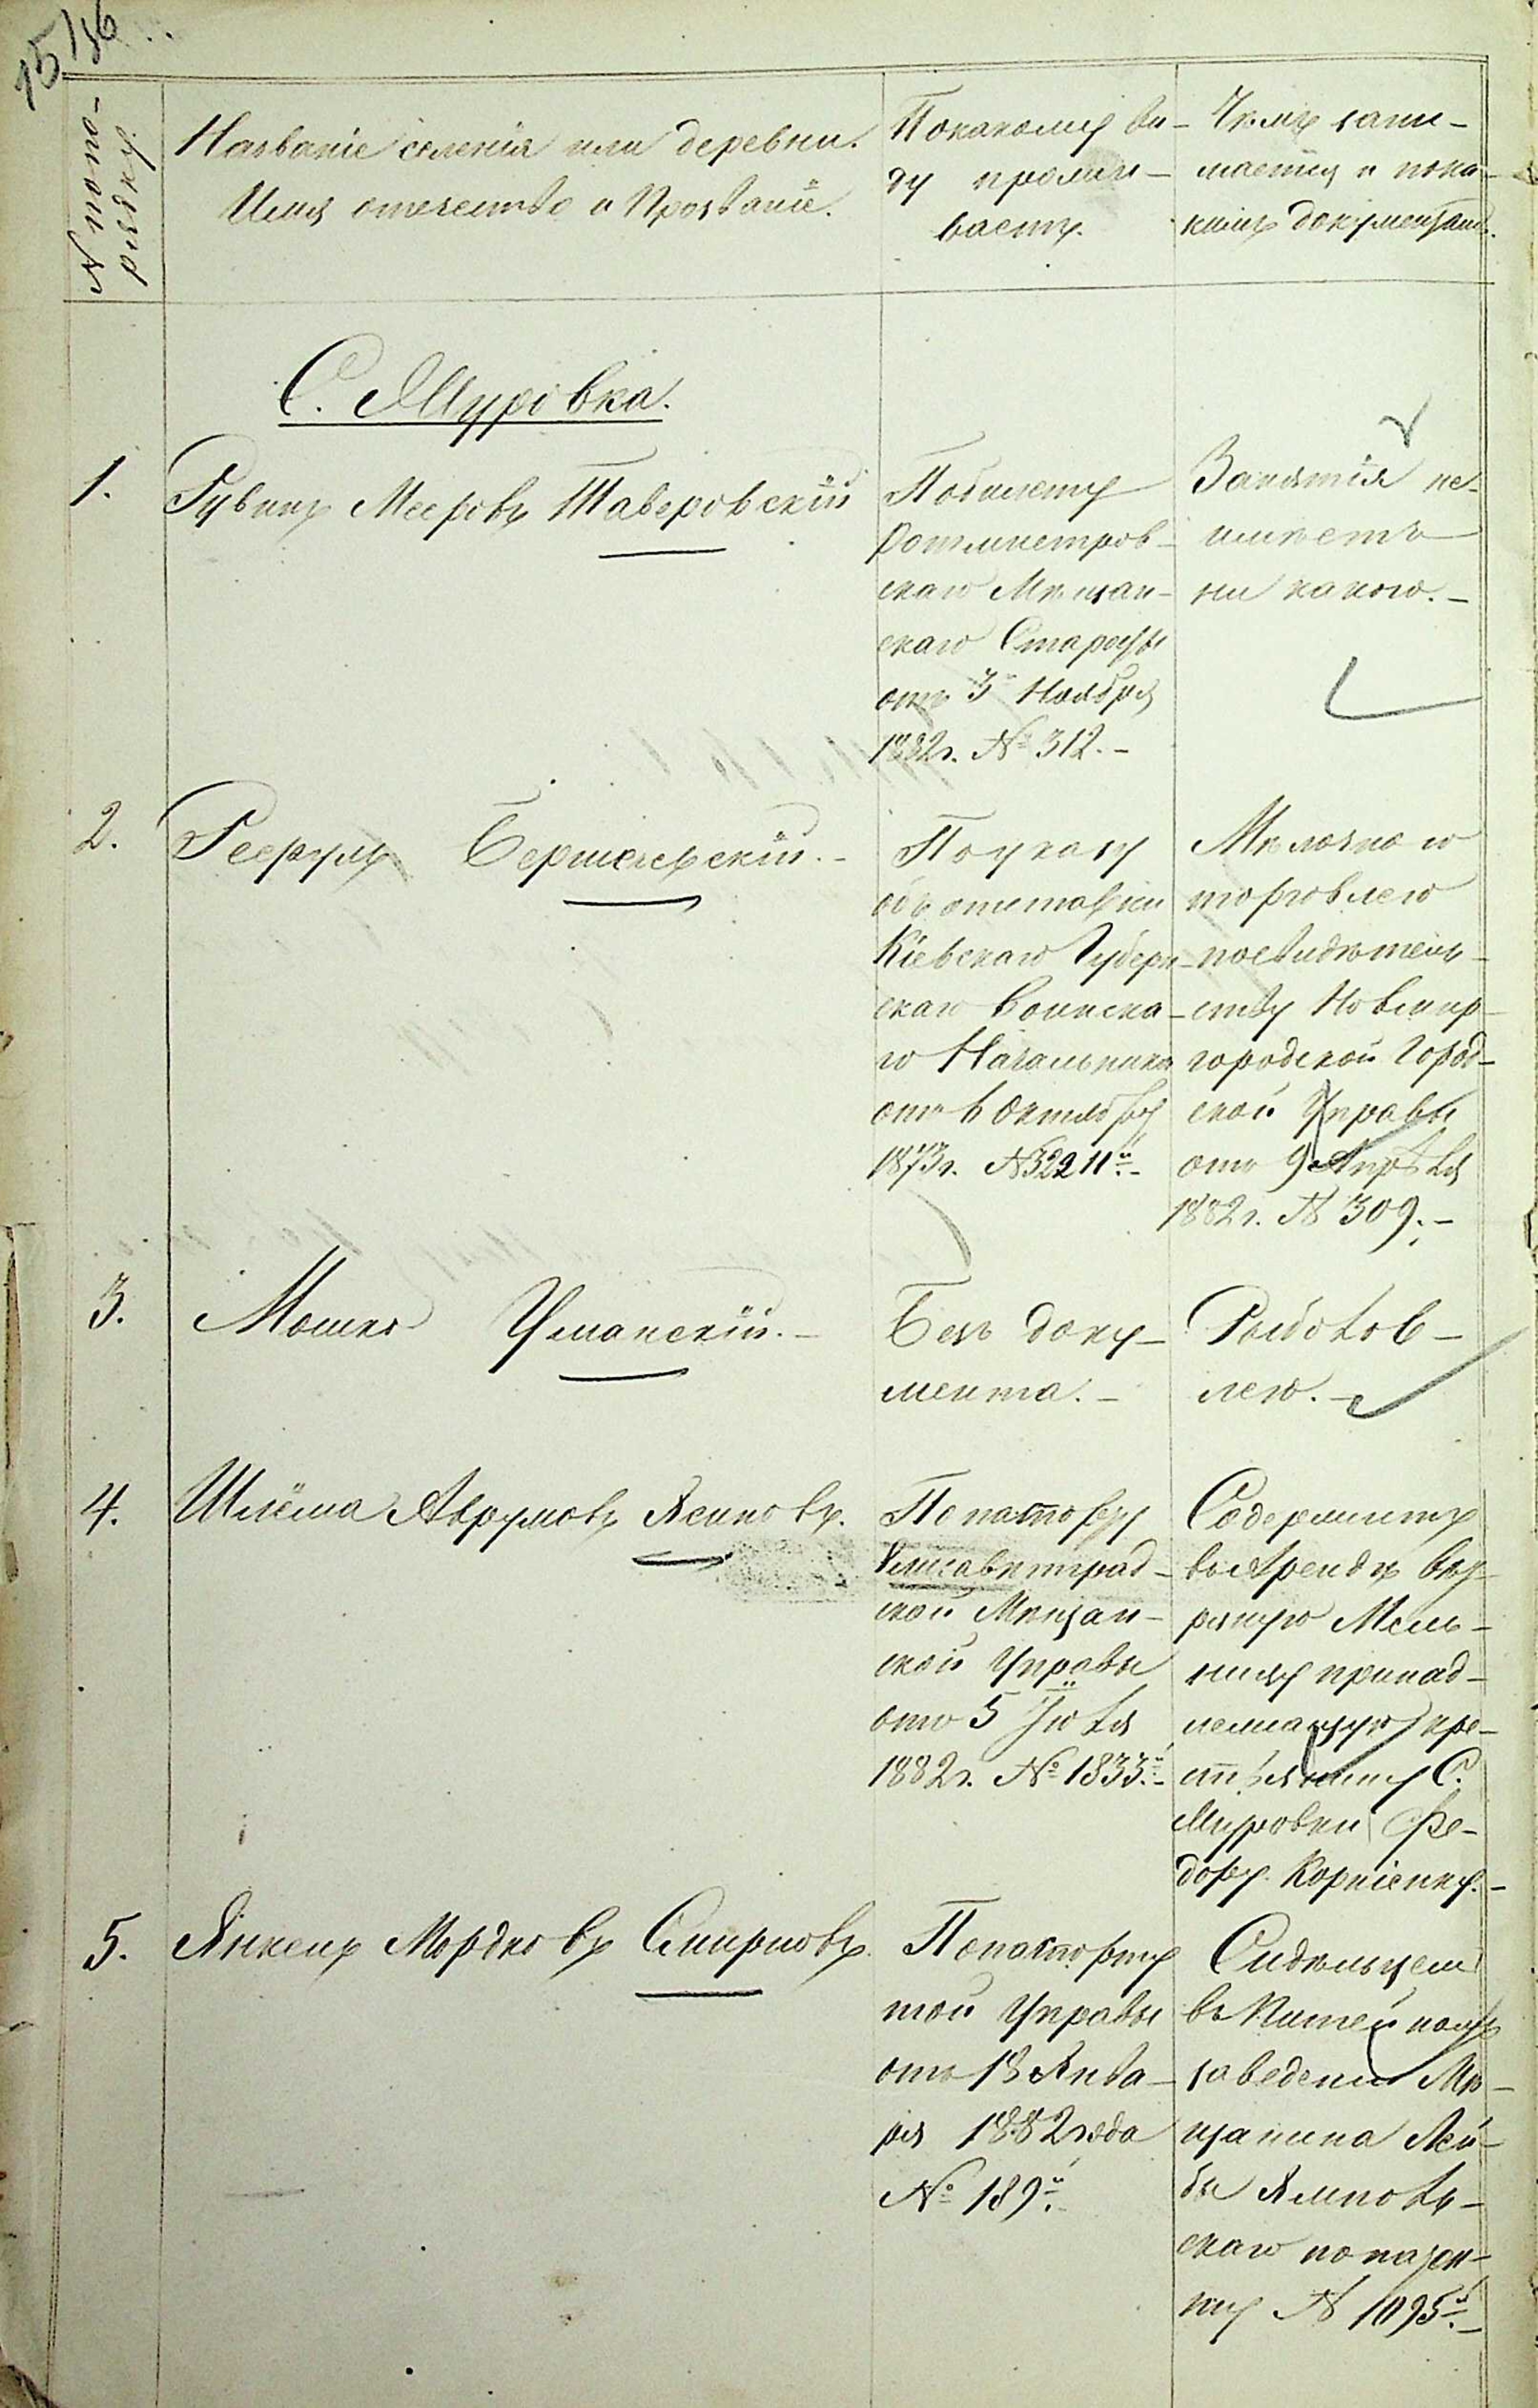 15/56
№ попо-
рядку
Названіе селенія или деревни.
Имя отечество и Прозваніе.
Покакому ви-
ду прожи-
ваетъ.
Чѣмъ зани-
мается и пока-
кимъ документамъ.
С. Муровка.
1.
Рувинъ Мееровъ Таверовскій
Побилету
Ротмистров-
скаго Мѣщан-
скаго Старосты
отъ 3 Ноября
1882г. № 312.-
Занятія не-
имѣетъ
ни какого.-
2.
Бершедскій.-
Поуказу
объ отставки
Кіевскаго Губерн-
скаго Воинска-
го Начальника
отъ 6 Октября
1873г. №32211й.-
Мѣлочною
торговлею
посвидѣтель-
ству Новмир-
городской Город-
ской Управы
отъ 9 Апрѣля
1882г. № 309.-
3.
Мошко Уманскій.-
Безъ доку-
мента.-
Рыболов-
лею.-
4.
Шлёма Аврумовъ Ясиновъ.
Попаспорту
Елисаветград-
ской Мѣщан-
ской Управы
отъ 5 Іюля
1882г. № 1833й.-
Содержитъ
въ Арендѣ вѣт-
ряную Мель-
ницу принад-
лежащую кре-
стьянину С.
Муровки Фе-
дору Корніенку.-
5.
Янкель Мордковъ Смирновъ.
Попаспорту
той Управы
отъ 13 Янва-
ря 1882 года
№ 189й.
Сидѣльцемъ
въ Питейномъ
заведеніи Мѣ-
щанина Лей-
бы Ямполь-
скаго попатен-
ту № 1095й.-